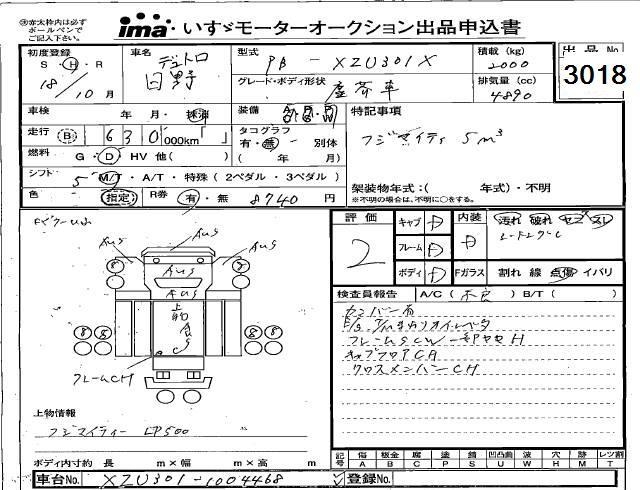 ㊟赤太枠内は必ず
ボールペンで
ご記入下さい。
ima・いすゞモーターオークション出品申込書
初度登録 S・H・R
18/10月
車名 デュトロ
日野
型式 PB - XZU301X
グレード・ボディ形状 塵芥車
積載(kg) 2000
排気量(cc) 4890
出品No
3018
車検 年 月・抹消
装備
走行 B 630(000km)
タコグラフ
有・無・別体
( 年 月)
燃料 G・D・HV 他( )
シフト 5 M/T・A/T・特殊(2ペダル・3ペダル)
色 指定 R券 有・無 8740円
特記事項
フジマイティ 5m³
架装物年式:( 年式)・不明
※不明の場合は、不明に○をする。
AUS AUS
AUS
AUS
8 8
8 8 8 8
上物AUS
C
フレームCH
上物情報
フジマイティー LP500
ボディ内寸約 長 m×幅 m×高 m
評価 2
キャブ D
フレーム D
ボディ D
内装 D
汚れ 破れ コゲ スレ
Fガラス 割れ 線 点傷 イバリ
検査員報告 A/C(不良) B/T( )
フレームSCW一部ヤセH
キャブフロアCA
クロスメンバーCH
記号 傷A 板金B 腐C 塗P 錆S 凹凸曲U 波W 穴H 跡M レンズ割T
車台No. XZU301-1004468
登録No.